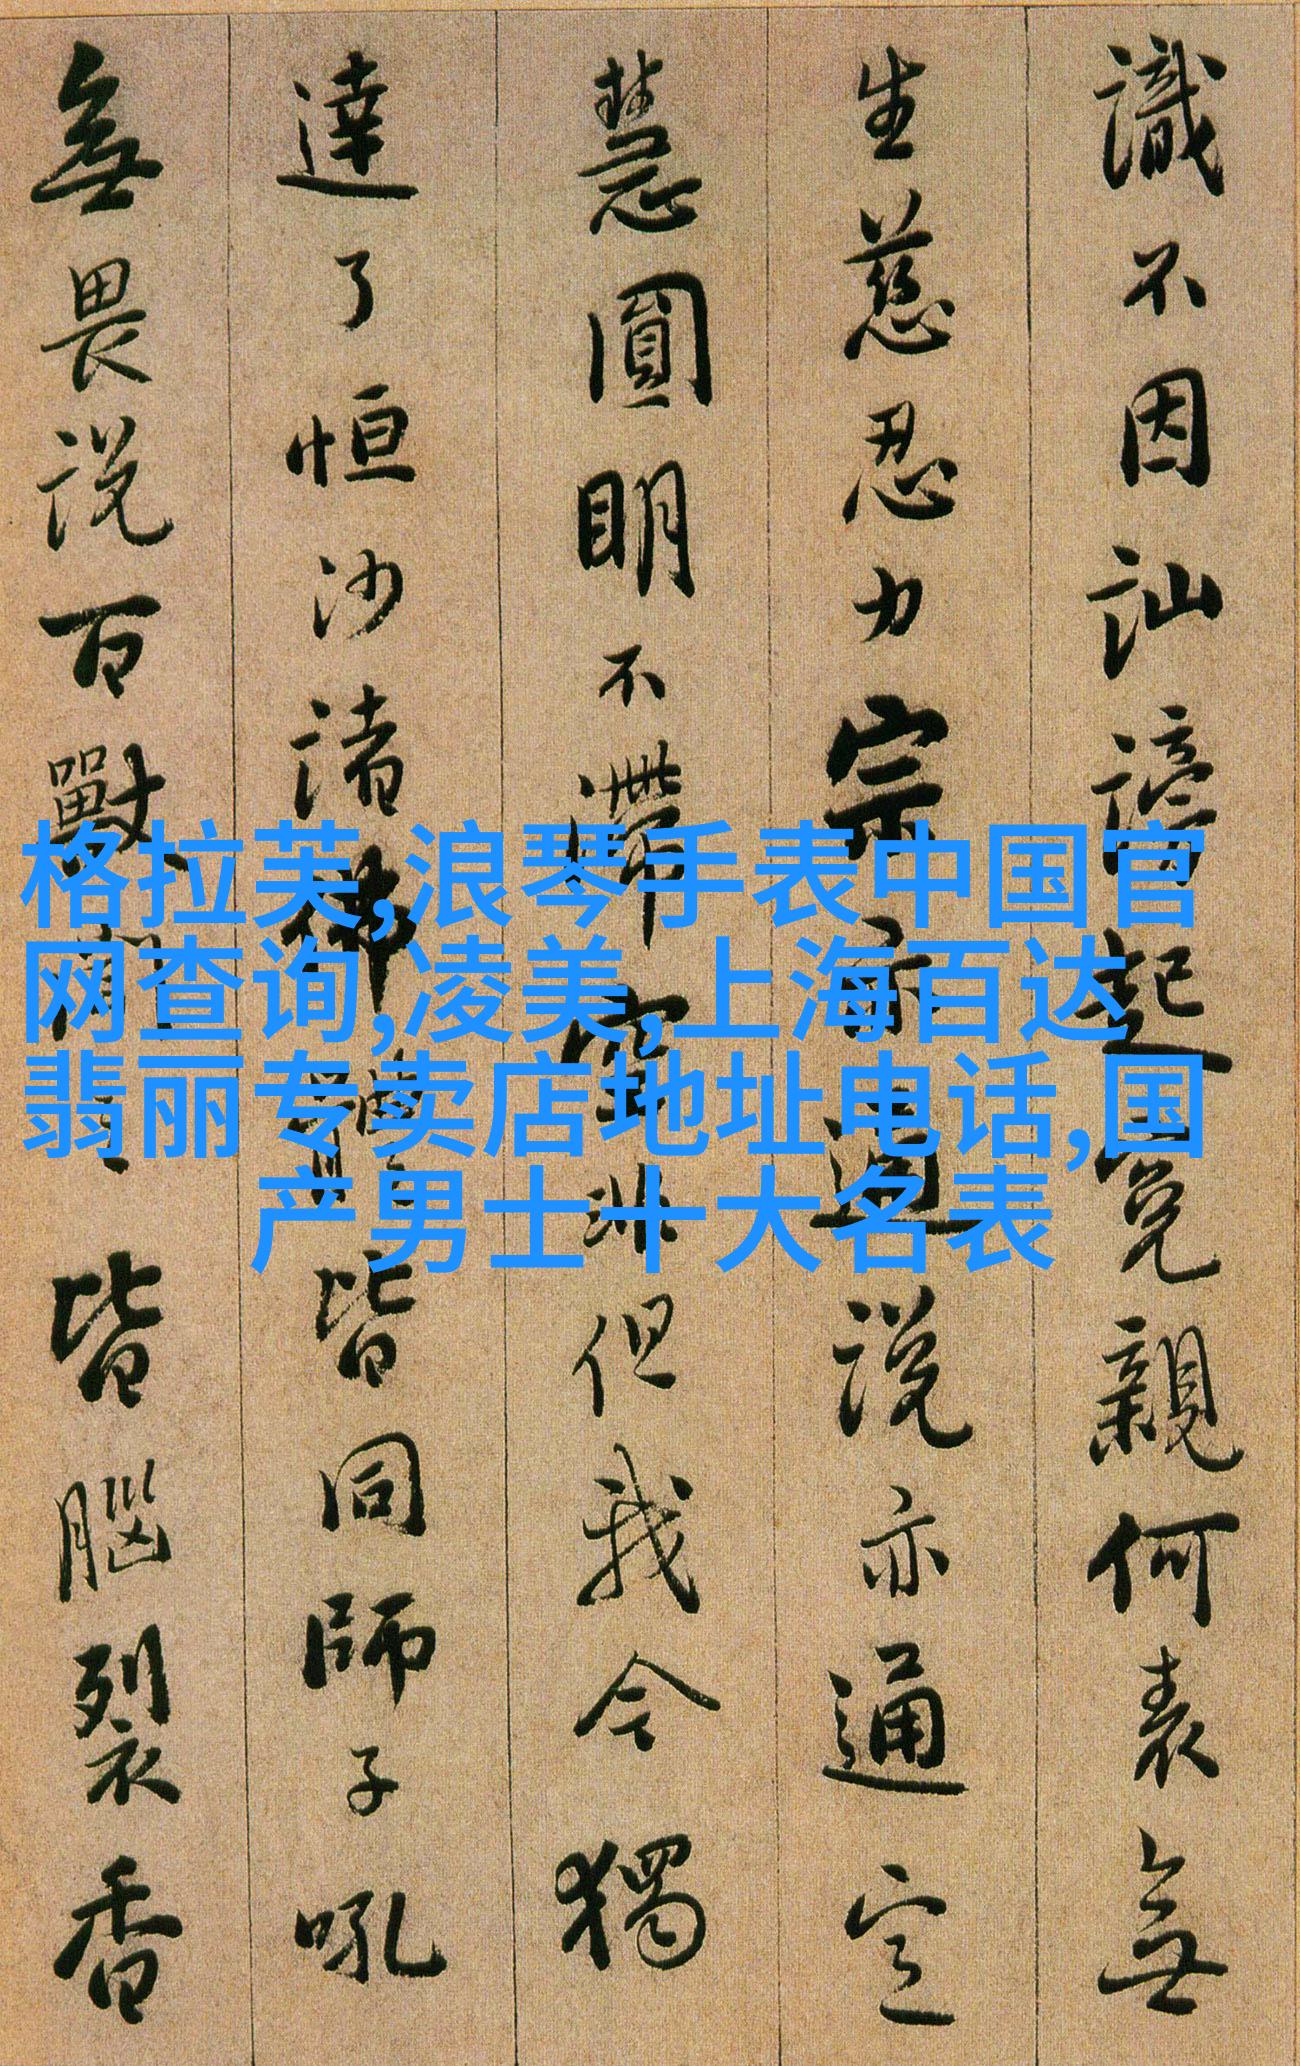 識不因訕謗起冤親何表無
生慈忍力宗亦通說亦通定
慧圓明不滯空非但我今獨
達了恒沙諸佛體皆同師子吼
無畏說百獸聞皆腦裂香
格拉芙,浪琴手表中国官
网查询,凌美,上海百达
翡丽专卖店地址电话,国
产男士十大名表